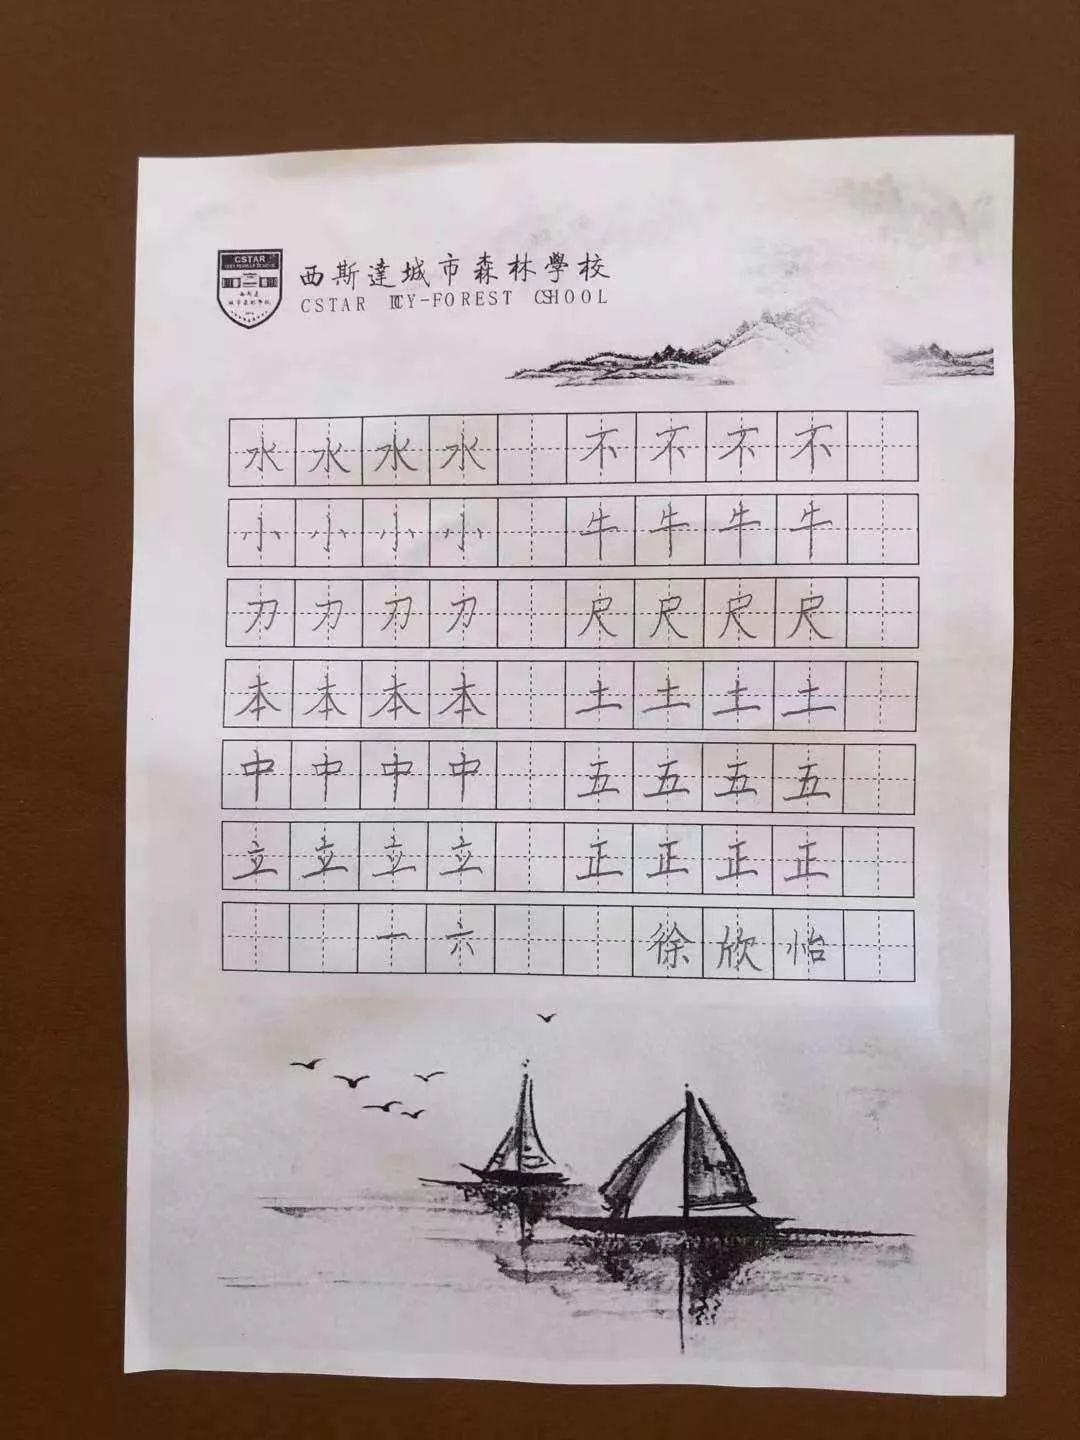 CSTAR
西斯達城市森林學校
CSTAR ICY-FOREST CSHOOL
水水水水 不不不不
小小小小 牛牛牛牛
刃刃刃刃 尺尺尺尺
本本本本 土土土土
中中中中 五五五五
立立立立 正正正正
一六 徐欣怡